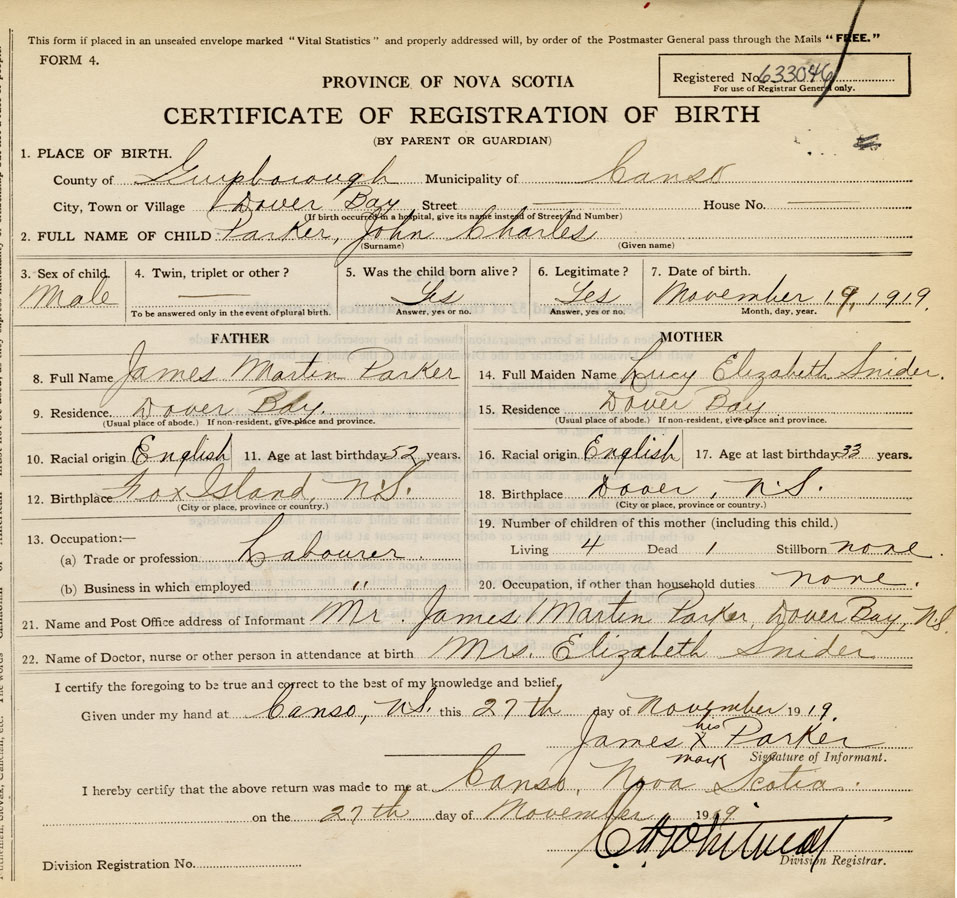 This form if placed in an unsealed envelope marked "Vital Statistics" and properly addressed will, by order of the Postmaster General pass through the Mails "FREE."
FORM 4.
Registered No. 633046
For use of Registrar General only.
PROVINCE OF NOVA SCOTIA
CERTIFICATE OF REGISTRATION OF BIRTH
(BY PARENT OR GUARDIAN)
1. PLACE OF BIRTH.
County of Guysborough Municipality of Canso
City, Town or Village Dover Bay Street House No.
(If birth occurred in a hospital, give its name instead of Street and Number)
2. FULL NAME OF CHILD Parker, John Charles
(Surname) (Given name)
3. Sex of child. 4. Twin, triplet or other? 5. Was the child born alive? 6. Legitimate? 7. Date of birth.
Male — Yes Yes November 19, 1919.
To be answered only in the event of plural birth. Answer, yes or no. Answer, yes or no. Month, day, year.
FATHER MOTHER
8. Full Name James Martin Parker 14. Full Maiden Name Lucy Elizabeth Snider.
9. Residence. Dover Bay. 15. Residence Dover Bay
(Usual place of abode.) If non-resident, give place and province. (Usual place of abode.) If non-resident, give place and province.
10. Racial origin English 11. Age at last birthday 52 years. 16. Racial origin English 17. Age at last birthday 33 years.
12. Birthplace Fox Island, N.S. 18. Birthplace Dover, N.S.
(City or place, province or country.) (City or place, province or country.)
13. Occupation:— 19. Number of children of this mother (including this child.)
(a) Trade or profession. Labourer. Living 4 Dead 1 Stillborn none.
(b) Business in which employed " 20. Occupation, if other than household duties none.
21. Name and Post Office address of Informant Mr. James Martin Parker, Dover Bay, N.S.
22. Name of Doctor, nurse or other person in attendance at birth Mrs. Elizabeth Snider
I certify the foregoing to be true and correct to the best of my knowledge and belief.
Given under my hand at Canso, N.S. this 27th day of November 1919.
James his X mark Parker
Signature of Informant.
I hereby certify that the above return was made to me at Canso, Nova Scotia.
on the 27th day of November 1919.
Division Registration No. Division Registrar.